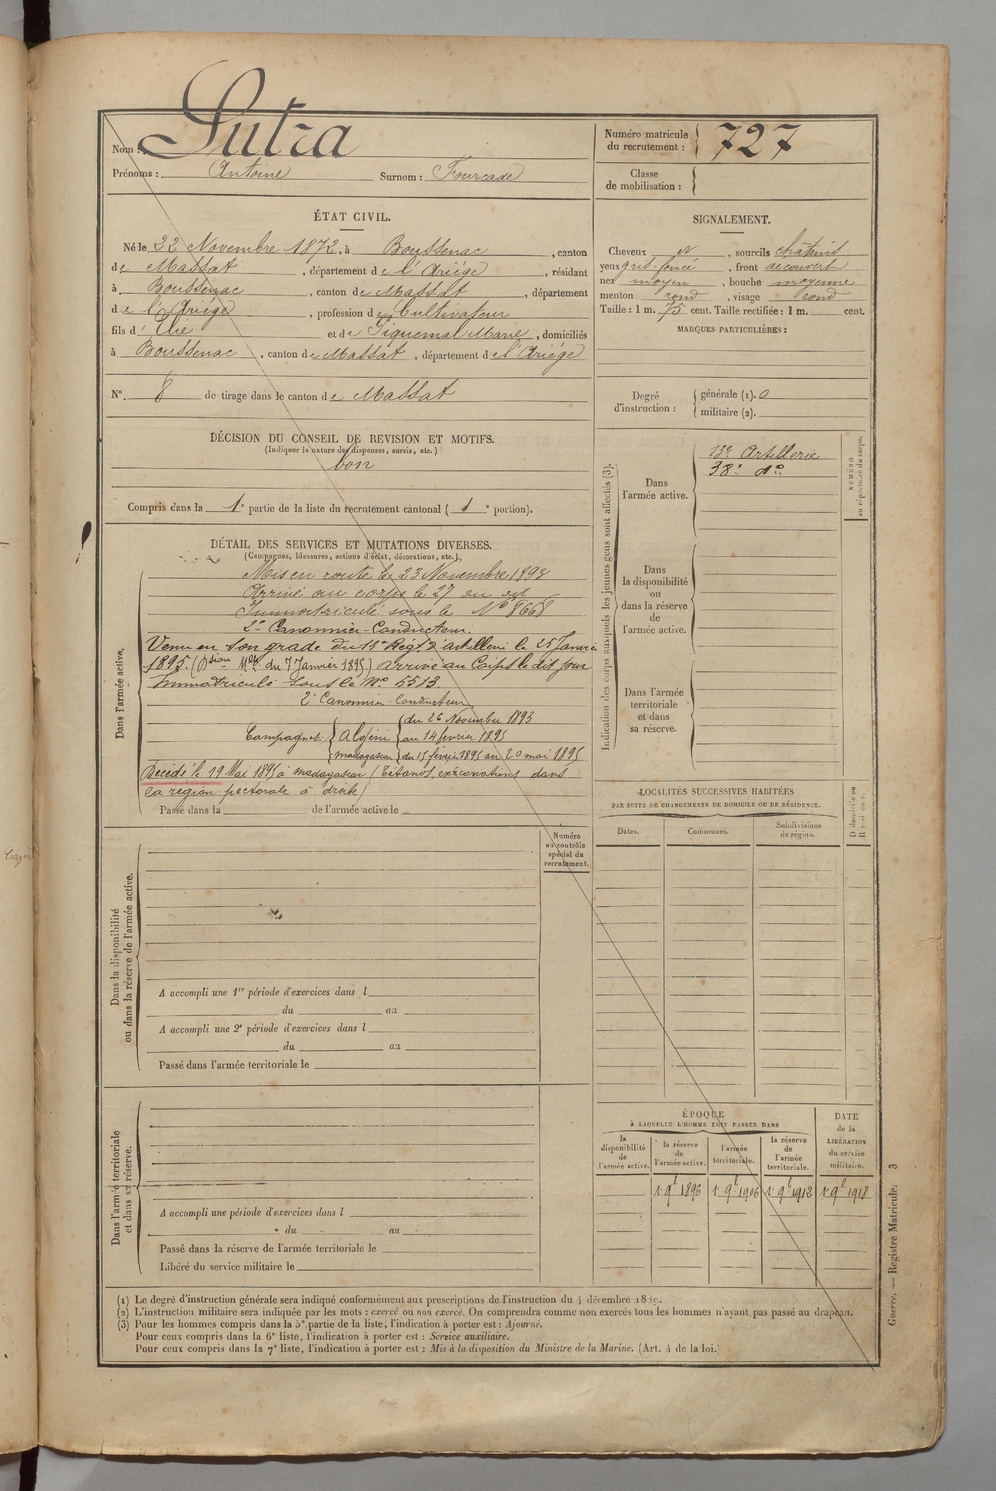 Nom : Sutra
Prénoms : Antoine Surnom : Fourcade
Numéro matricule du recrutement : 727
Classe de mobilisation :
ÉTAT CIVIL.
Né le 22 Novembre 1872, à Boussenac, canton
de Massat, département de l'Ariége, résidant
à Boussenac, canton de Massat, département
de l'Ariége, profession de Cultivateur
fils d' Elie et de Piquemal Marie, domiciliés
à Boussenac, canton de Massat, département de l'Ariége
N° 8 de tirage dans le canton de Massat
DÉCISION DU CONSEIL DE REVISION ET MOTIFS.
(Indiquer la nature des dispenses, sursis, etc.)
bon
Compris dans la 1e partie de la liste du recrutement cantonal ( 1 e portion).
SIGNALEMENT.
Cheveux N, sourcils châtains
yeux gris-foncé, front découvert
nez moyen, bouche moyenne
menton rond, visage rond
Taille : 1 m. 75 cent. Taille rectifiée : 1 m. cent.
MARQUES PARTICULIÈRES :
Degré d'instruction :
générale (1). 0
militaire (2).
DÉTAIL DES SERVICES ET MUTATIONS DIVERSES.
(Campagnes, blessures, actions d'éclat, décorations, etc.)
Dans l'armée active.
Mis en route le 23 Novembre 1893
Arrivé au corps le 27 du dit
Immatriculé sous le N° 8668
2e Canonnier-Conducteur.
Venu en son grade du 13e Regt d'artillerie le 25 Janvier
1895. (Dsion Mlle du 7 Janvier 1895.) Arrivé au Corps le dit jour
Immatriculé sous le No 5513.
2e Canonnier-Conducteur
Campagnes Algérie du 26 Novembre 1893
au 14 février 1895
Madagascar du 15 février 1895 au 20 mai 1895
Décédé le 19 Mai 1895 à Madagascar (Tétanos, excoriations dans
la région pectorale à droite)
Passé dans la de l'armée active le
Indication des corps auxquels les jeunes gens sont affectés (3).
NUMÉRO au répertoire du corps.
Dans l'armée active.
13e Artillerie
38e do
Dans la disponibilité ou dans la réserve de l'armée active.
Dans l'armée territoriale et dans sa réserve.
LOCALITÉS SUCCESSIVES HABITÉES
PAR SUITE DE CHANGEMENTS DE DOMICILE OU DE RÉSIDENCE.
Dates. Communes. Subdivisions de région.
Numéro au contrôle spécial du recrutement.
Dans la disponibilité ou dans la réserve de l'armée active.
A accompli une 1re période d'exercices dans l
du au
A accompli une 2e période d'exercices dans l
du au
Passé dans l'armée territoriale le
Dans l'armée territoriale et dans sa réserve.
A accompli une période d'exercices dans l
du au
Passé dans la réserve de l'armée territoriale le
Libéré du service militaire le
ÉPOQUE
À LAQUELLE L'HOMME DOIT PASSER DANS
la disponibilité de l'armée active.
la réserve de l'armée active.
l'armée territoriale.
la réserve de l'armée territoriale.
DATE de la LIBÉRATION du service militaire.
1r 9b 1896 1r 9b 1906 1r 9b 1912 1r 9b 1918
(1) Le degré d'instruction générale sera indiqué conformément aux prescriptions de l'instruction du 4 décembre 1889.
(2) L'instruction militaire sera indiquée par les mots : exercé ou non exercé. On comprendra comme non exercés tous les hommes n'ayant pas passé au drapeau.
(3) Pour les hommes compris dans la 5e partie de la liste, l'indication à porter est : Ajourné.
Pour ceux compris dans la 6e liste, l'indication à porter est : Service auxiliaire.
Pour ceux compris dans la 7e liste, l'indication à porter est : Mis à la disposition du Ministre de la Marine. (Art. 4 de la loi.)
Guerre. — Registre Matricule. 3